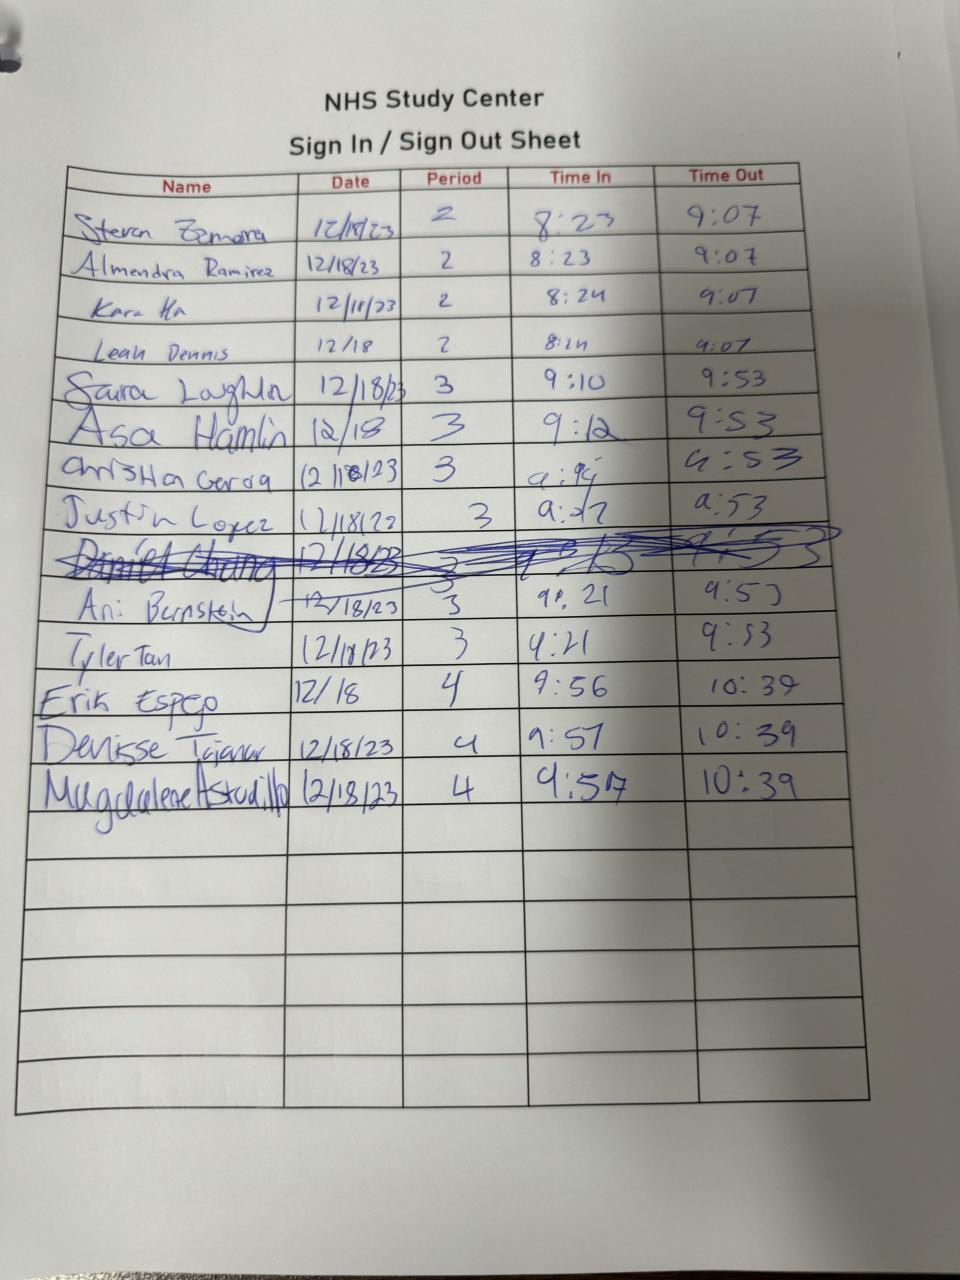 NHS Study Center
Sign In / Sign Out Sheet
Name Date Period Time In Time Out
Steven Zamora 12/18/23 2 8:23 9:07
Almendra Ramirez 12/18/23 2 8:23 9:07
Kara Ha 12/18/23 2 8:24 9:07
Leah Dennis 12/18 2 8:24 9:07
Saira Loughlin 12/18/23 3 9:10 9:53
Asa Hamlin 12/18 3 9:12 9:53
Garcia 12/18/23 3 9:53
Justin Lopez 3 9:53
Daniel Chang 12/18/23 3 9:53
Ani Bernstein 12/18/23 3 9:21 9:53
Tyler Tan 12/18/23 3 9:21 9:53
Erik Espejo 12/18 4 9:56 10:39
Denisse 12/18/23 4 9:57 10:39
Magdalene Astudillo 12/18/23 4 9:57 10:39